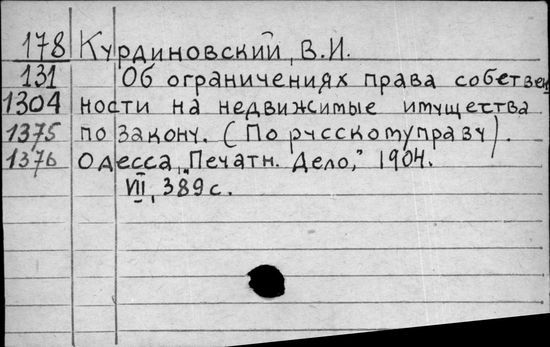 178 Курдиновский, В.И.
131 Об ограничениях права собствен
1304 ности на недвижимые имущества
1375 по закону. (По русскому праву).
1376 Одесса, „Печатн. Дело," 1904.
VII, 389 с.